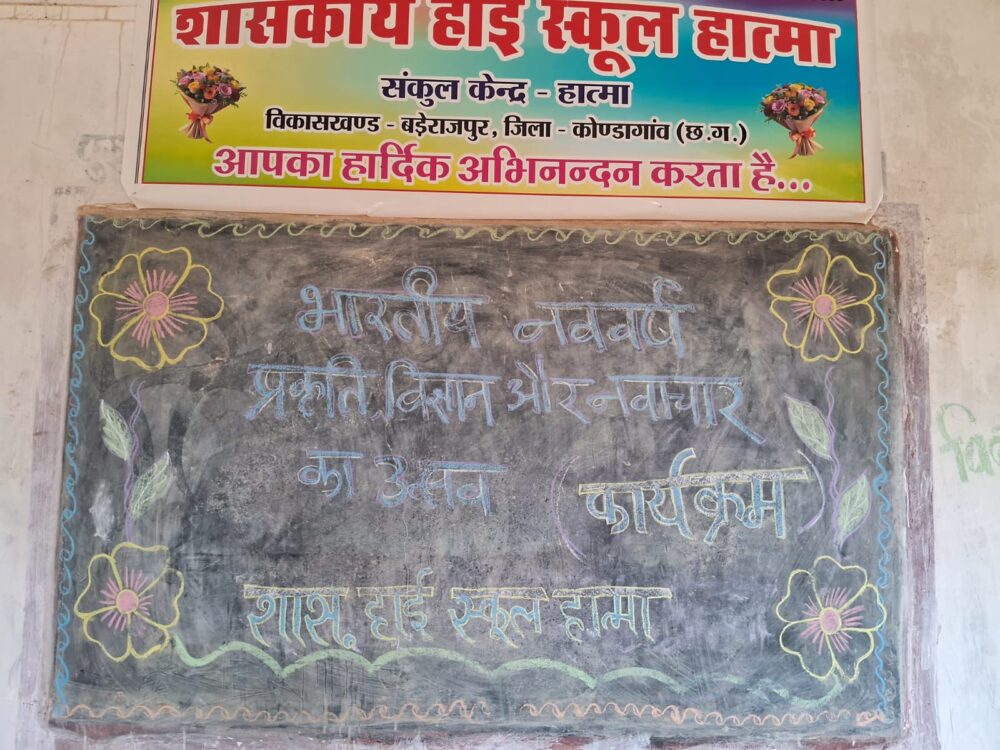 शासकीय हाई स्कूल हात्मा
संकुल केन्द्र - हात्मा
विकासखण्ड - बड़ेराजपुर, जिला - कोण्डागांव (छ.ग.)
आपका हार्दिक अभिनन्दन करता है...
भारतीय नववर्ष
प्रकृति, विज्ञान और नवाचार
का उत्सव (कार्यक्रम)
शास. हाई स्कूल हात्मा